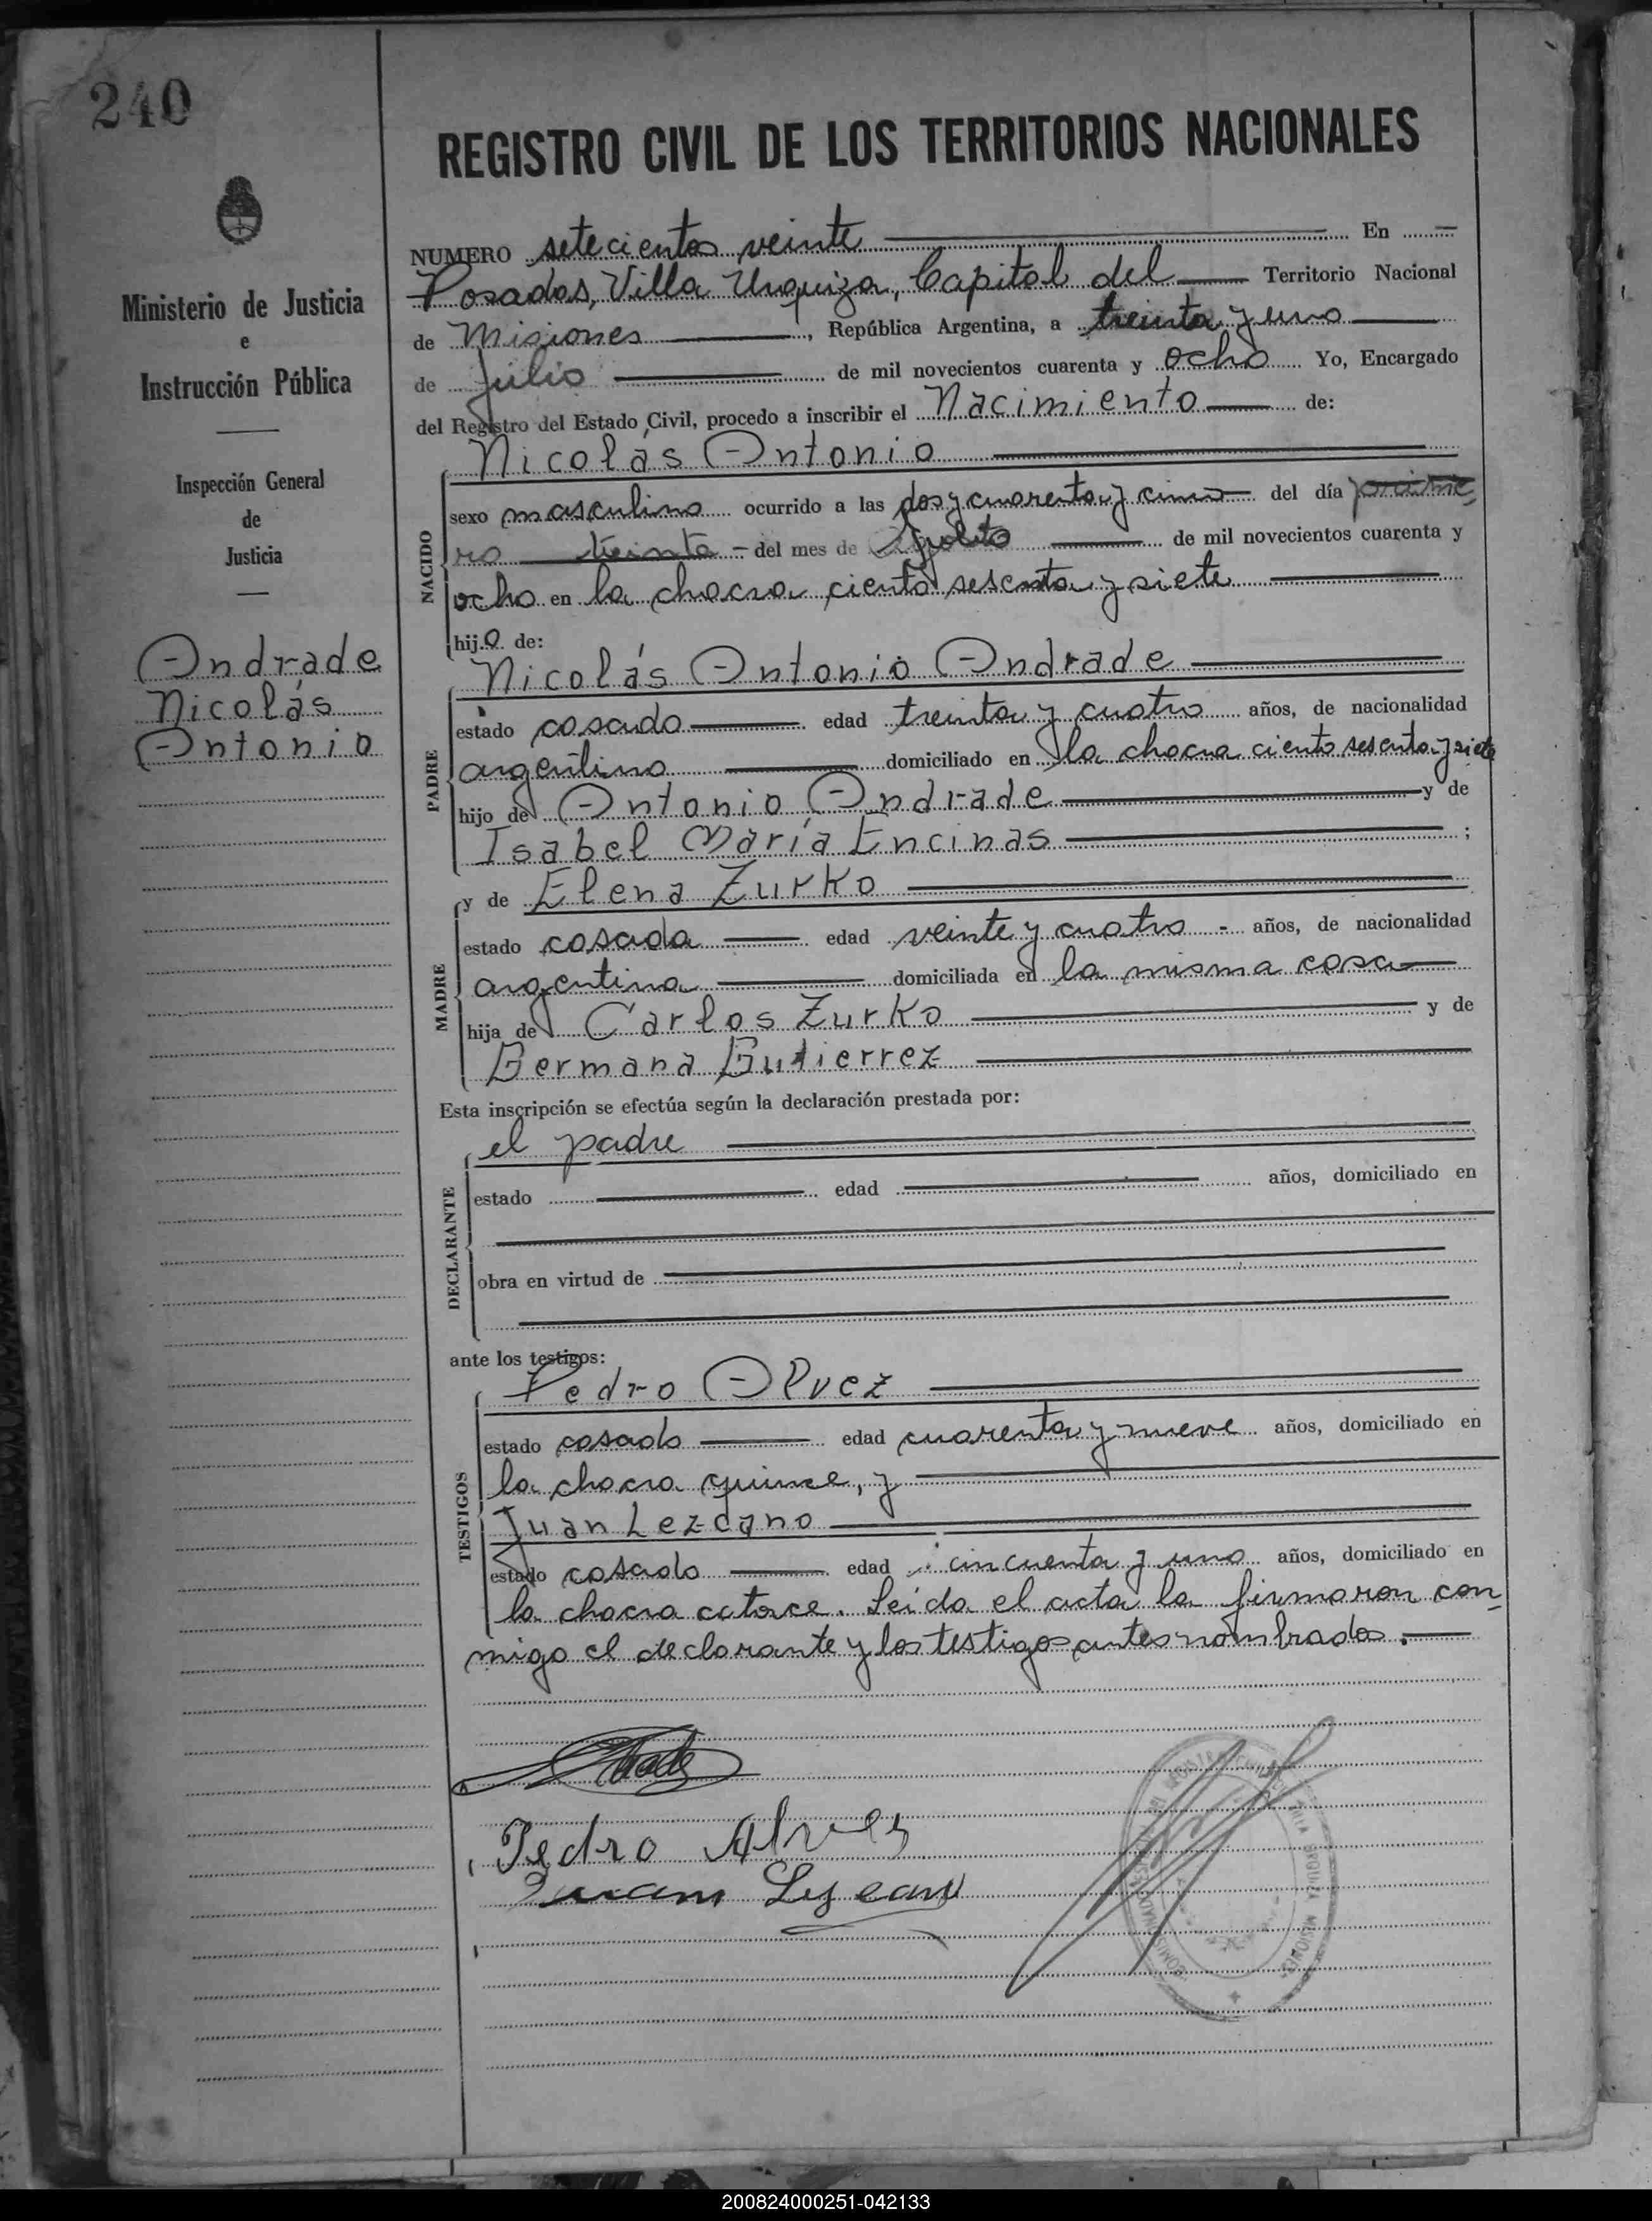 240
REGISTRO CIVIL DE LOS TERRITORIOS NACIONALES
Ministerio de Justicia
e
Instrucción Pública
Inspección General
de
Justicia
Andrade
Nicolás
Antonio
NUMERO setecientos veinte En
Posadas, Villa Urquiza, Capital del Territorio Nacional
de Misiones, República Argentina, a treinta y uno
de julio de mil novecientos cuarenta y ocho Yo, Encargado
del Registro del Estado Civil, procedo a inscribir el Nacimiento de:
Nicolás Antonio
NACIDO
sexo masculino ocurrido a las dos y cuarenta y cinco del día prime
ro treinta - del mes de de mil novecientos cuarenta y
ocho en la chacra ciento sesenta y siete
hijo de:
Nicolás Antonio Andrade
PADRE
estado casado edad treinta y cuatro años, de nacionalidad
argentino domiciliado en la chacra ciento sesenta y siete
hijo de Antonio Andrade y de
Isabel María Encinas ;
y de Elena Zurko
MADRE
estado casada edad veinte y cuatro - años, de nacionalidad
argentina domiciliada en la misma casa
hija de Carlos Zurko y de
Germana Gutierrez
Esta inscripción se efectúa según la declaración prestada por:
el padre
DECLARANTE
estado edad años, domiciliado en
obra en virtud de
ante los testigos:
Pedro Alvez
TESTIGOS
estado casado edad cuarenta y nueve años, domiciliado en
la chacra quince, y
Juan Lezcano
estado casado edad cincuenta y uno años, domiciliado en
la chacra catorce. Leída el acta la firmaron con
migo el declarante y los testigos antes nombrados.
Pedro Alves
Juan Lescano
200824000251-042133